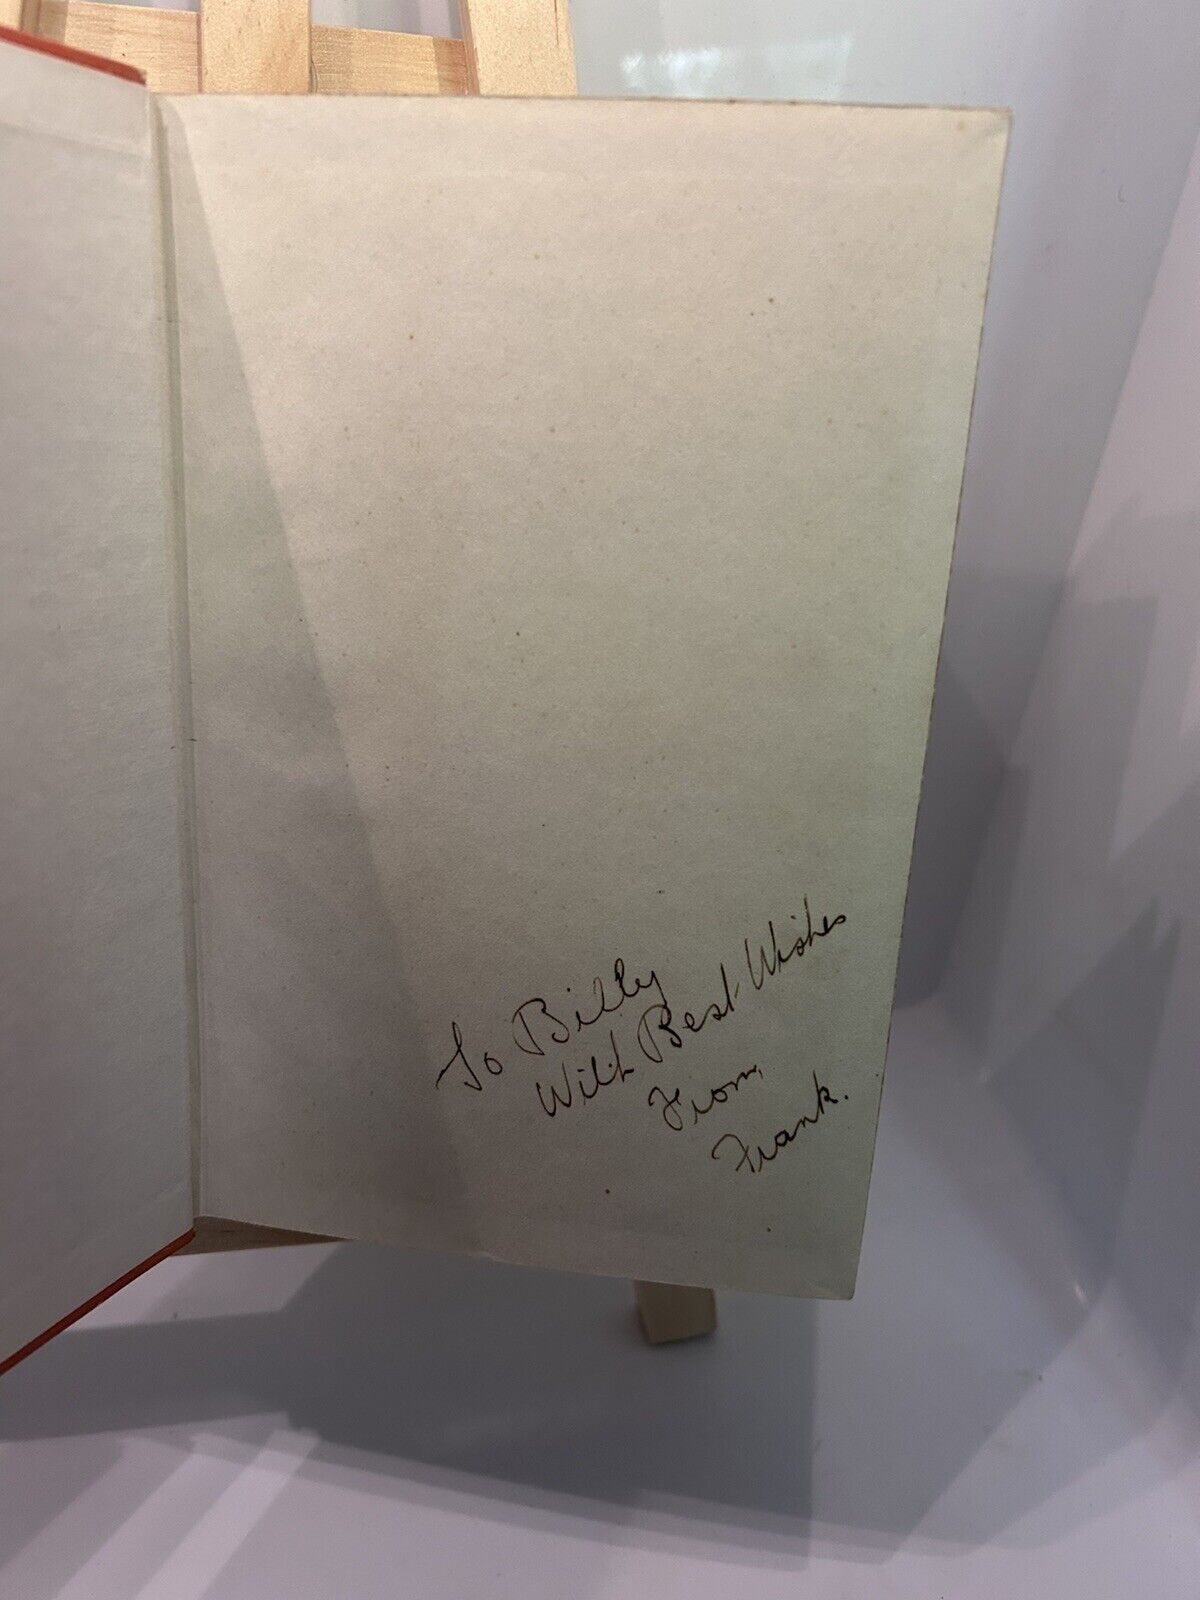 To Billy
With Best Wishes
From,
Frank.